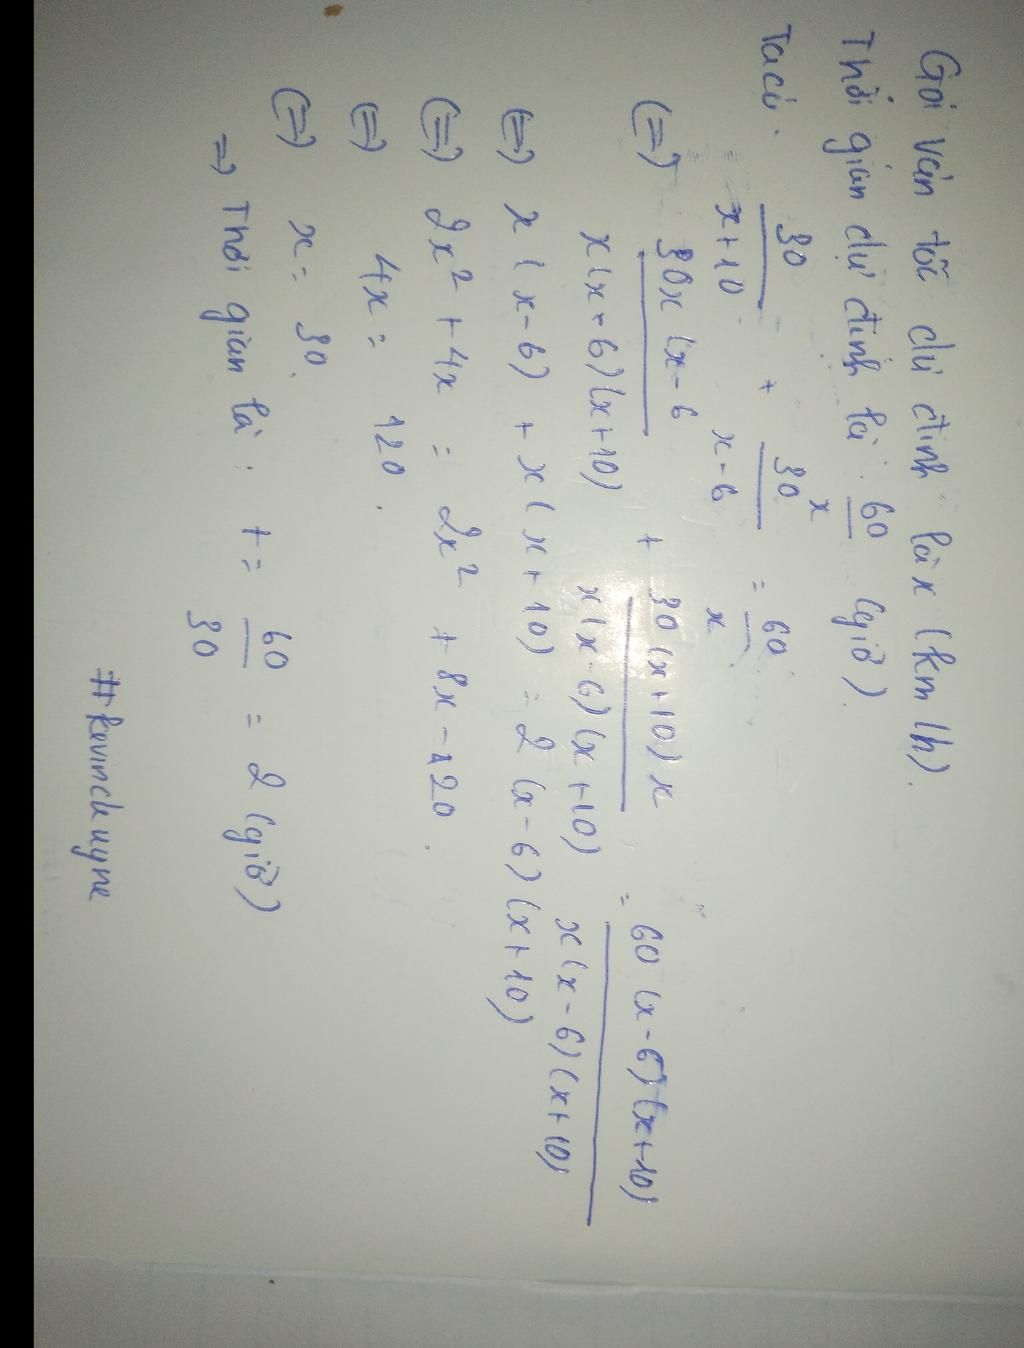 Gọi vận tốc dự định là x (km/h).
Thời gian dự định là: 60/x (giờ).
Ta có: 30/(x+10) + 30/(x-6) = 60/x
(=) 30x(x-6)/(x(x-6)(x+10)) + 30(x+10)x/(x(x-6)(x+10)) = 60(x-6)(x+10)/(x(x-6)(x+10))
(=) x(x-6) + x(x+10) = 2(x-6)(x+10)
(=) 2x² + 4x = 2x² + 8x - 120.
(=) 4x = 120.
(=) x = 30.
=> Thời gian là: t = 60/30 = 2 (giờ)
#kevinchuyne